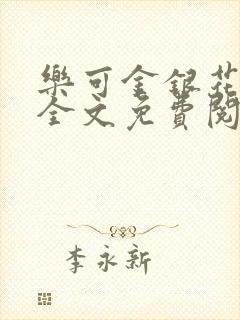 樂可金銀花
全文免費閱
李永新